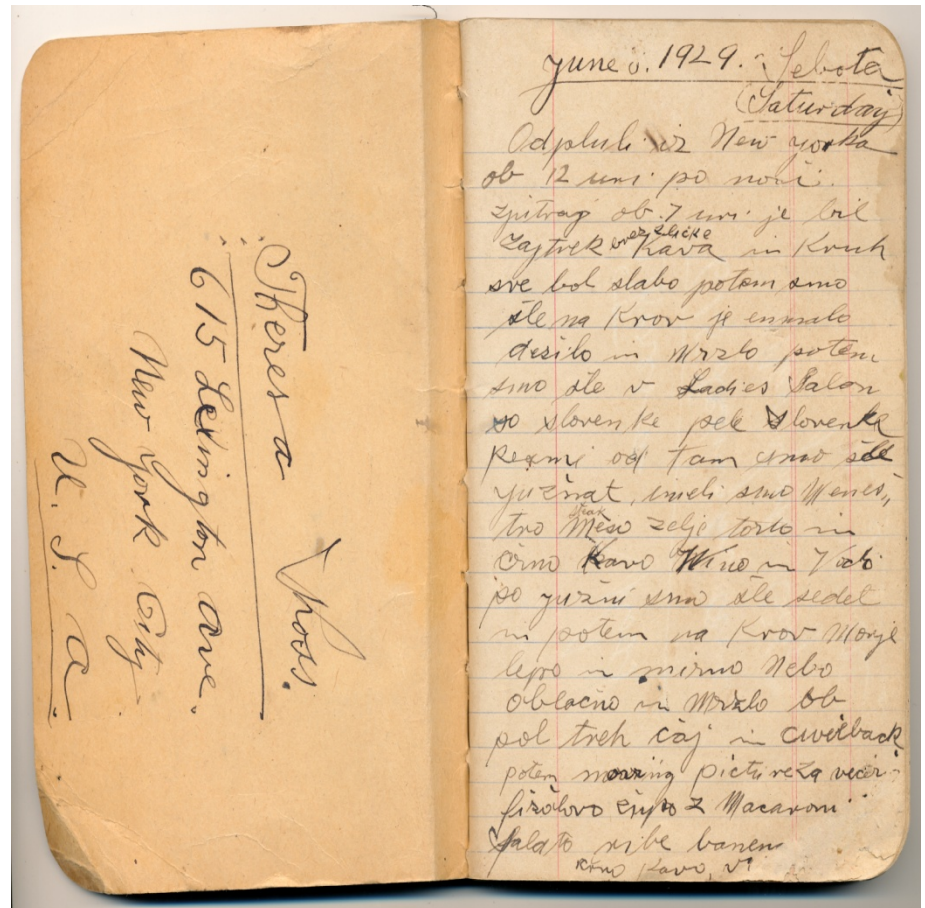 Theresa
615 Lexington ave.
New York City
U. S. A.
June 8. 1929. Sebota
(Saturday)
Odpluli iz New yorka
ob 12 uri po noči.
Zjutraj ob 7 uri je bil
brez žličke
Zajtrek Kava in Kruh
sve bol slabo potem smo
šle na Krov je
dežilo in Mrzlo potem
smo šle v Ladies Salon
so slovenke pele Slovenke
od tam smo šle
južnat, imeli smo Menes„
tro Meso zelje torto in
črno Kavo Wino in Vodo
po južni smo šle sedet
in potem na Krov Morje
lepo in mirno Nebo
oblačno in Mrzlo ob
pol treh čaj in cwilback
potem moving picture za večir
fižolovo župo z Macaroni
Salato ribe banen
Kavo,